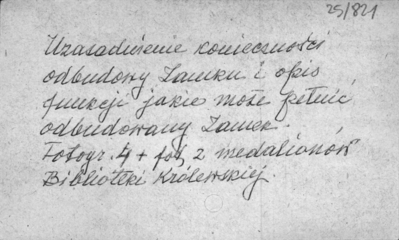 25/821
Uzasadnienie konieczności
odbudowy Zamku i opis
funkcji jakie może pełnić
odbudowany Zamek.
Fotogr. 4 + fot, 2 medalionów
Biblioteki Królewskiej.